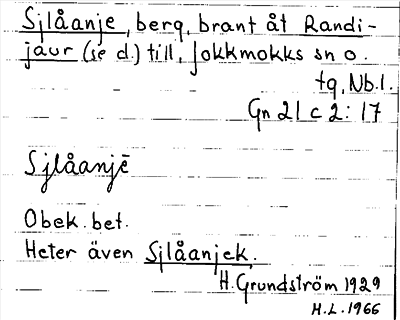 Sjlåanje, berg, brant åt Randi-
jaur (se d.) till, Jokkmokks sn o.
tg, Nb.l.
Gn 21 c 2: 17
Sjlåanjē
Obek. bet.
Heter även Sjlåanjek.
H. Grundström 1929
H.L. 1966